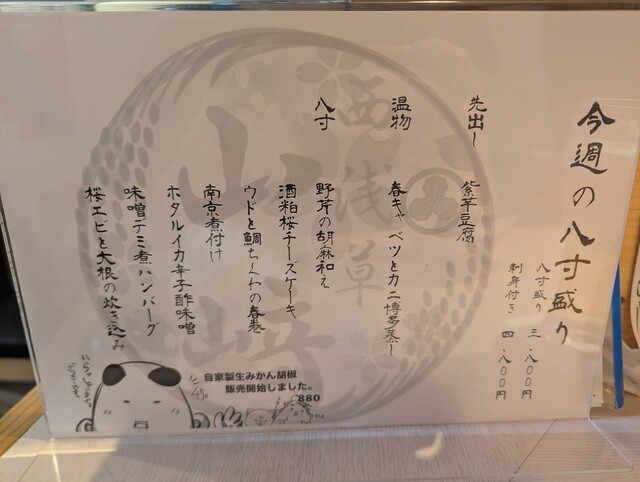 今週の八寸盛り
八寸盛り 三.八〇〇円
刺身付き 四.八〇〇円
先出し 紫芋豆腐
温物 春キャベツとカニ博多蒸し
八寸 野芹の胡麻和え
酒粕桜チーズケーキ
ウドと鯛ちくわの春巻
南京煮付け
ホタルイカ辛子酢味噌
味噌デミ煮ハンバーグ
桜エビと大根の炊き込み
西浅草
山崎
自家製生みかん胡椒
販売開始しました。
880